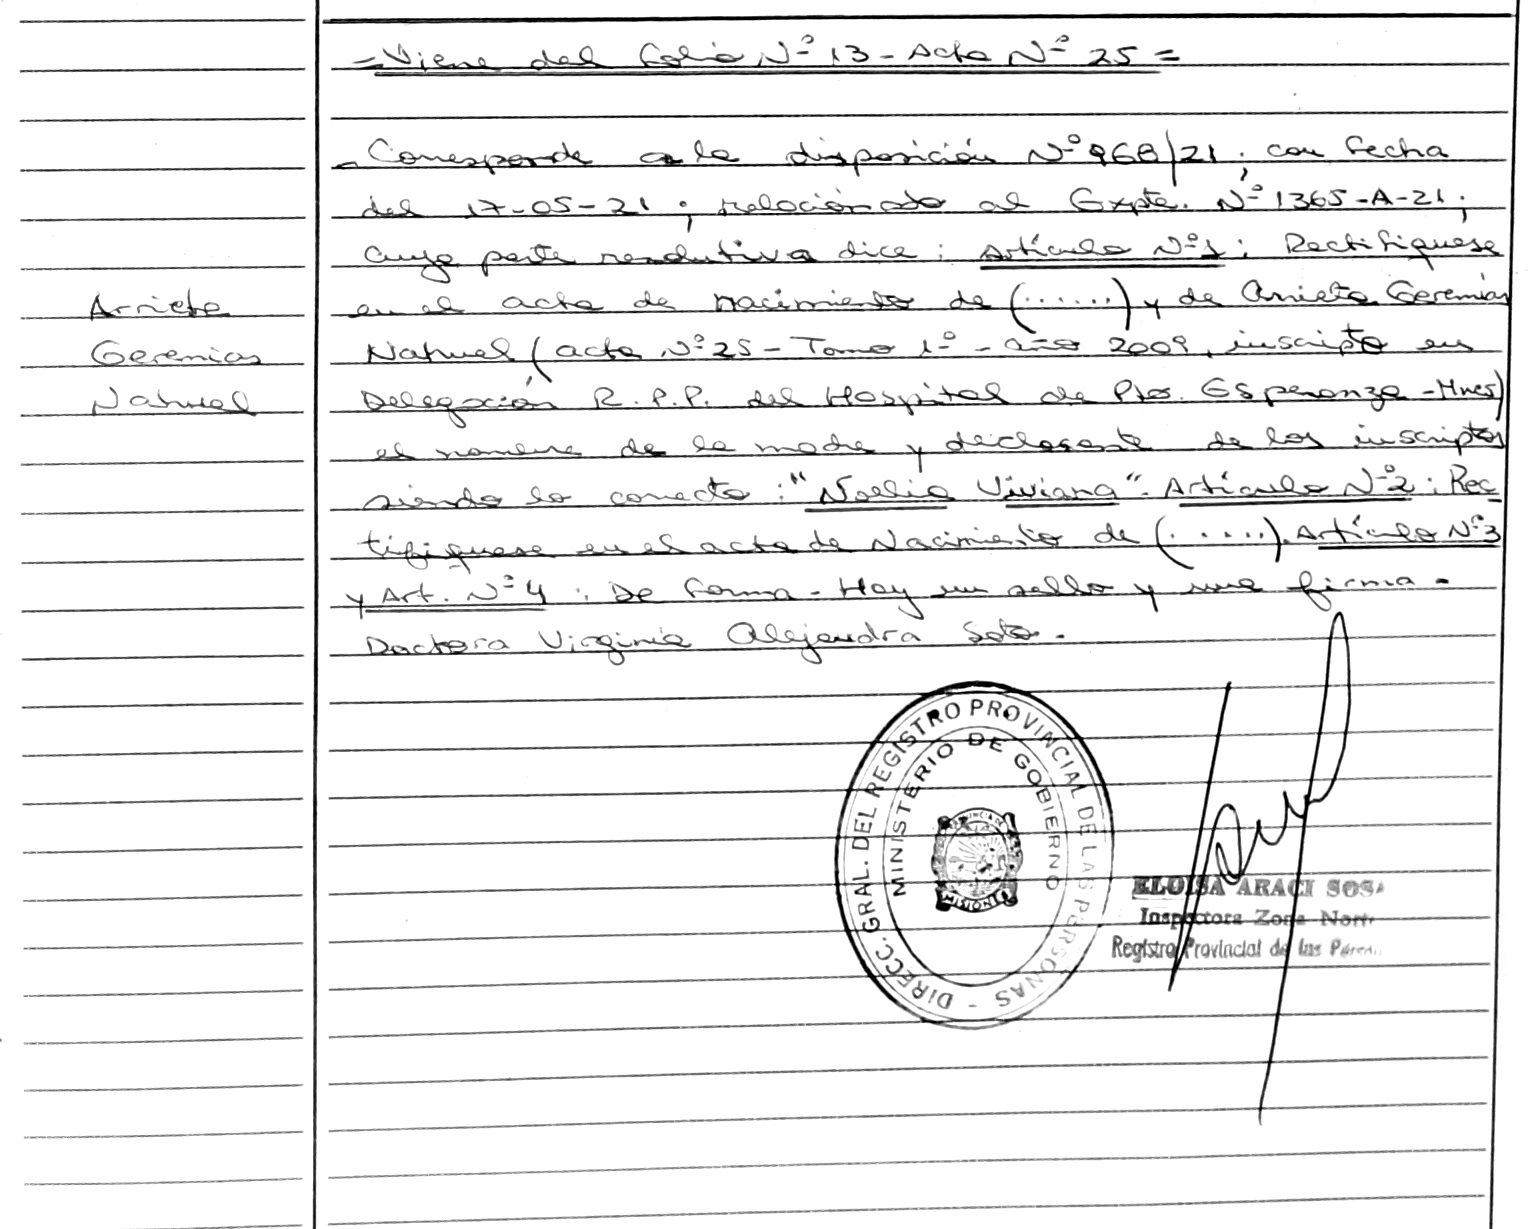 =Viene del Folio Nº 13 - Acta Nº 25 =
- Corresponde a la disposición Nº 968/21; con fecha
del 17-05-21; relacionado al Expte. Nº 1365-A-21;
cuya parte resolutiva dice: Artículo Nº1: Rectifíquese
en el acta de nacimiento de (......) y de Arrieta Geremías
Nahuel (acta Nº25 - Tomo 1º - año 2009, inscripto en
Delegación R.P.P. del Hospital de Pto. Esperanza - Mnes)
el nombre de la madre y declarante de los inscriptos
siendo lo correcto: "Noelia Viviana". Artículo Nº2: Rec-
tifiquese en el acta de Nacimiento de (.....). Artículo Nº3
y Art. Nº4: De forma - Hay un sello y una firma -
Doctora Virginia Alejandra Soto.
Arrieta
Geremias
Nahuel
DIRECC. GRAL. DEL REGISTRO PROVINCIAL DE LAS PERSONAS -
MINISTERIO DE GOBIERNO
PROVINCIA DE
MISIONES
ELOISA ARACI SOSA
Inspectora Zona Norte
Registro Provincial de las